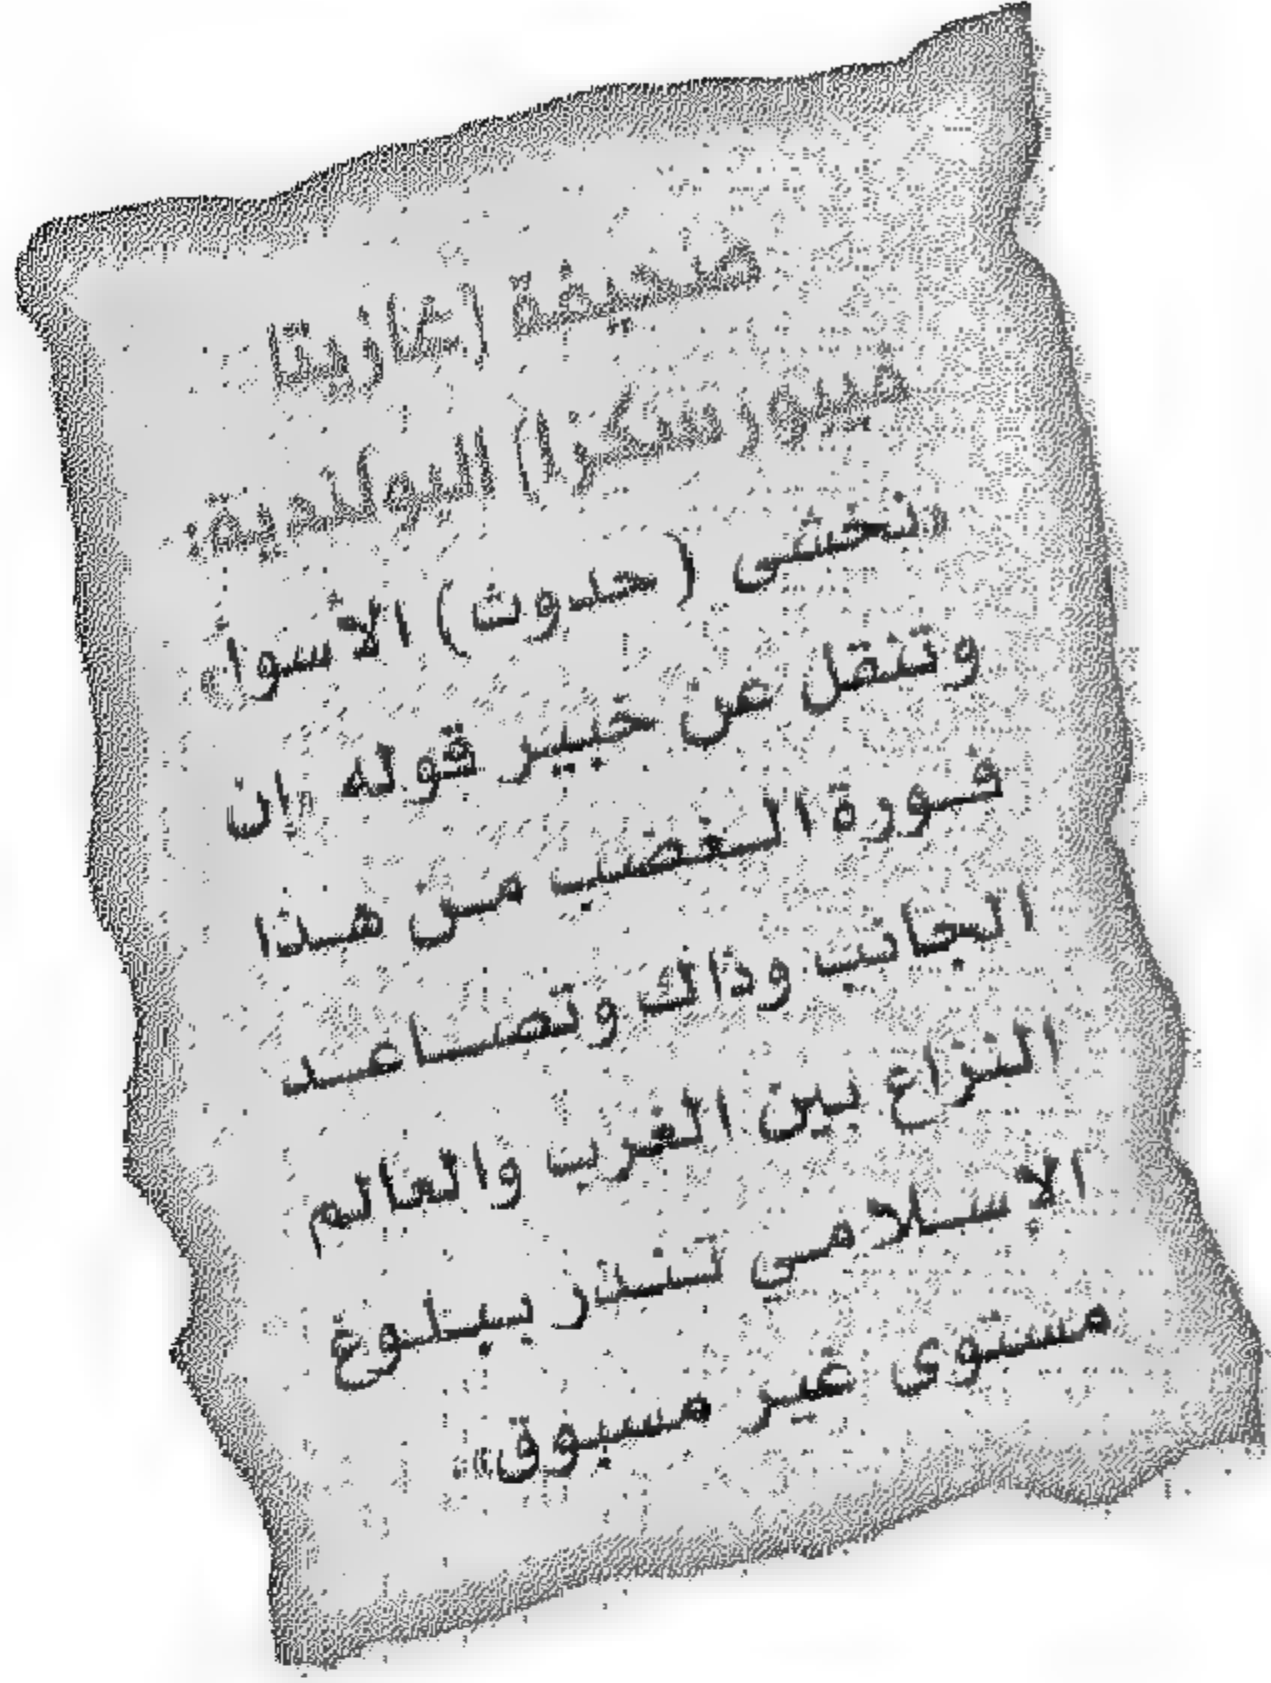 صحيفة (غازيتا
فيبورسكزا) البولندية:
«نخشى (حدوث) الأسوأ»
وتنقل عن خبير قوله «إن
فورة الغضب من هذا
الجانب وذاك وتصاعد
النزاع بين الغرب والعالم
الإسلامي تنذر ببلوغ
مستوى غير مسبوق»